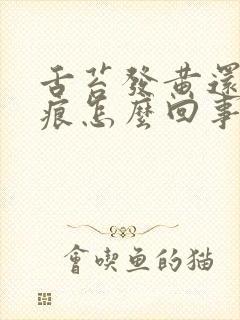 舌苔發黃還
痕怎麼回事
會喫魚的猫